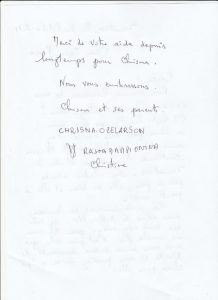 Merci de votre aide depuis
longtemps pour Chrisna.
Nous vous embrassons.
Chrisna et ses parents.
CHRISNA OZELARSON
Christine